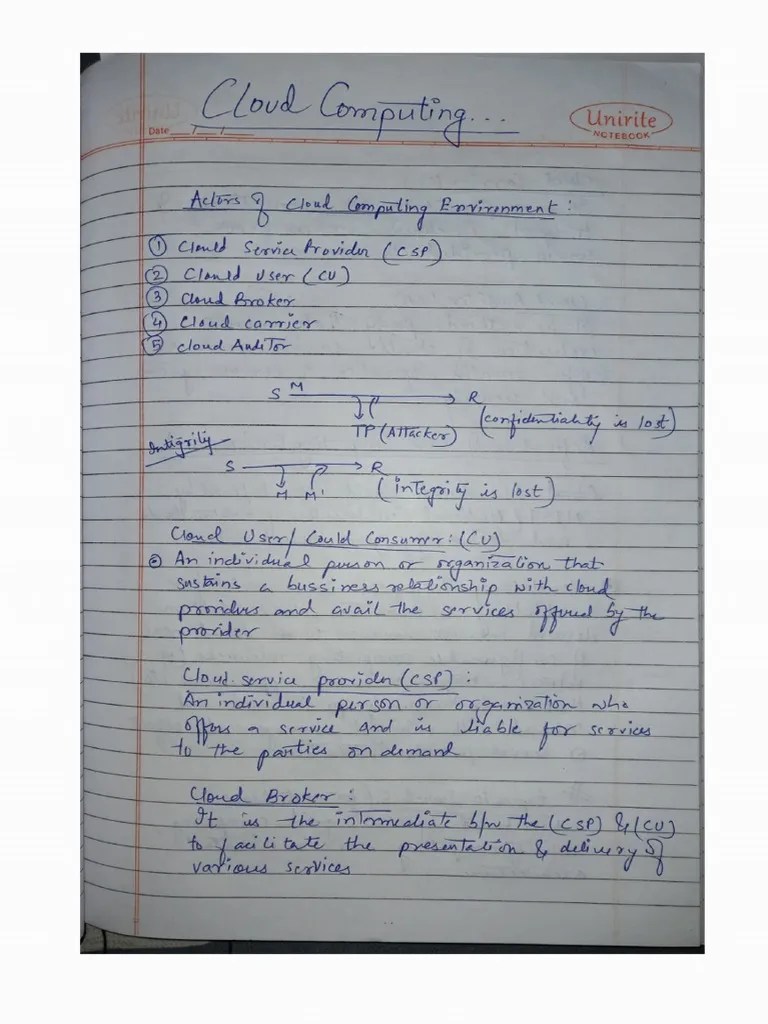 Cloud Computing...
Unirite
NOTEBOOK
Date / /
Actors of Cloud Computing Environment:
① Clould Service Provider (CSP)
② Clould User (CU)
③ Cloud Broker
④ Cloud carrier
⑤ cloud Auditor
S M R
TP (Attacker) (confidentiality is lost)
Intigrity
S R
M M' (integrity is lost)
Cloud User/ Could Consumer: (CU)
An individual person or organization that
sustains a bussiness relationship with cloud
providers and avail the services offered by the
provider
Cloud service provider (CSP) :
An individual person or organization who
offers a service and is liable for services
to the parties on demand
Cloud Broker :
It is the intermediate b/w the (CSP) & (CU)
to facilitate the presentation & delivery of
various services